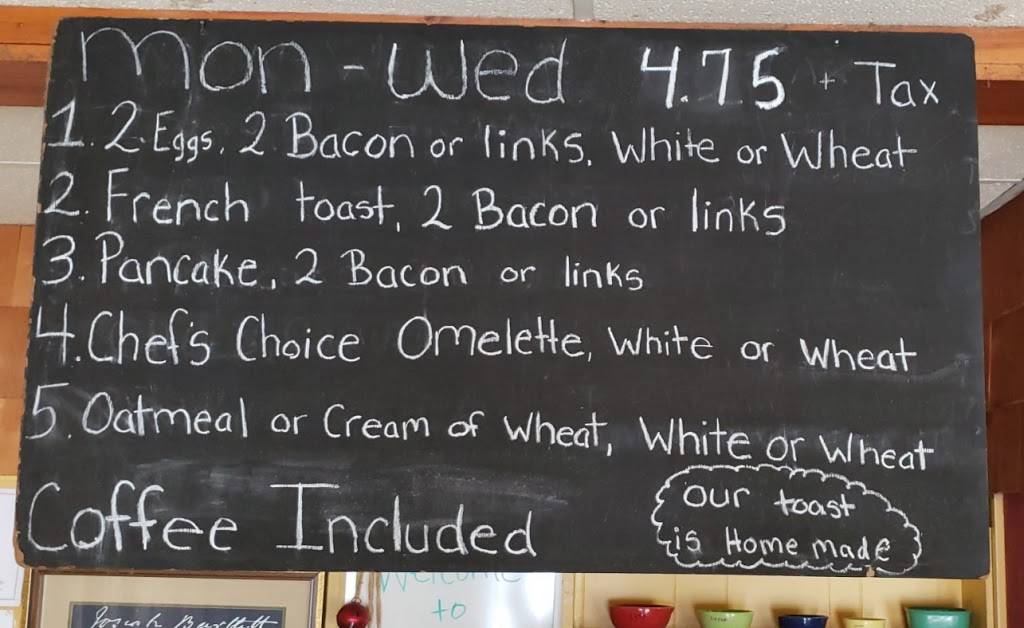 Mon - Wed 4.75 + Tax
1. 2 Eggs, 2 Bacon or links, White or Wheat
2. French toast, 2 Bacon or links
3. Pancake, 2 Bacon or links
4. Chef's Choice Omelette, White or Wheat
5. Oatmeal or Cream of Wheat, White or Wheat
Coffee Included
our toast
is Home made
Welcome
to